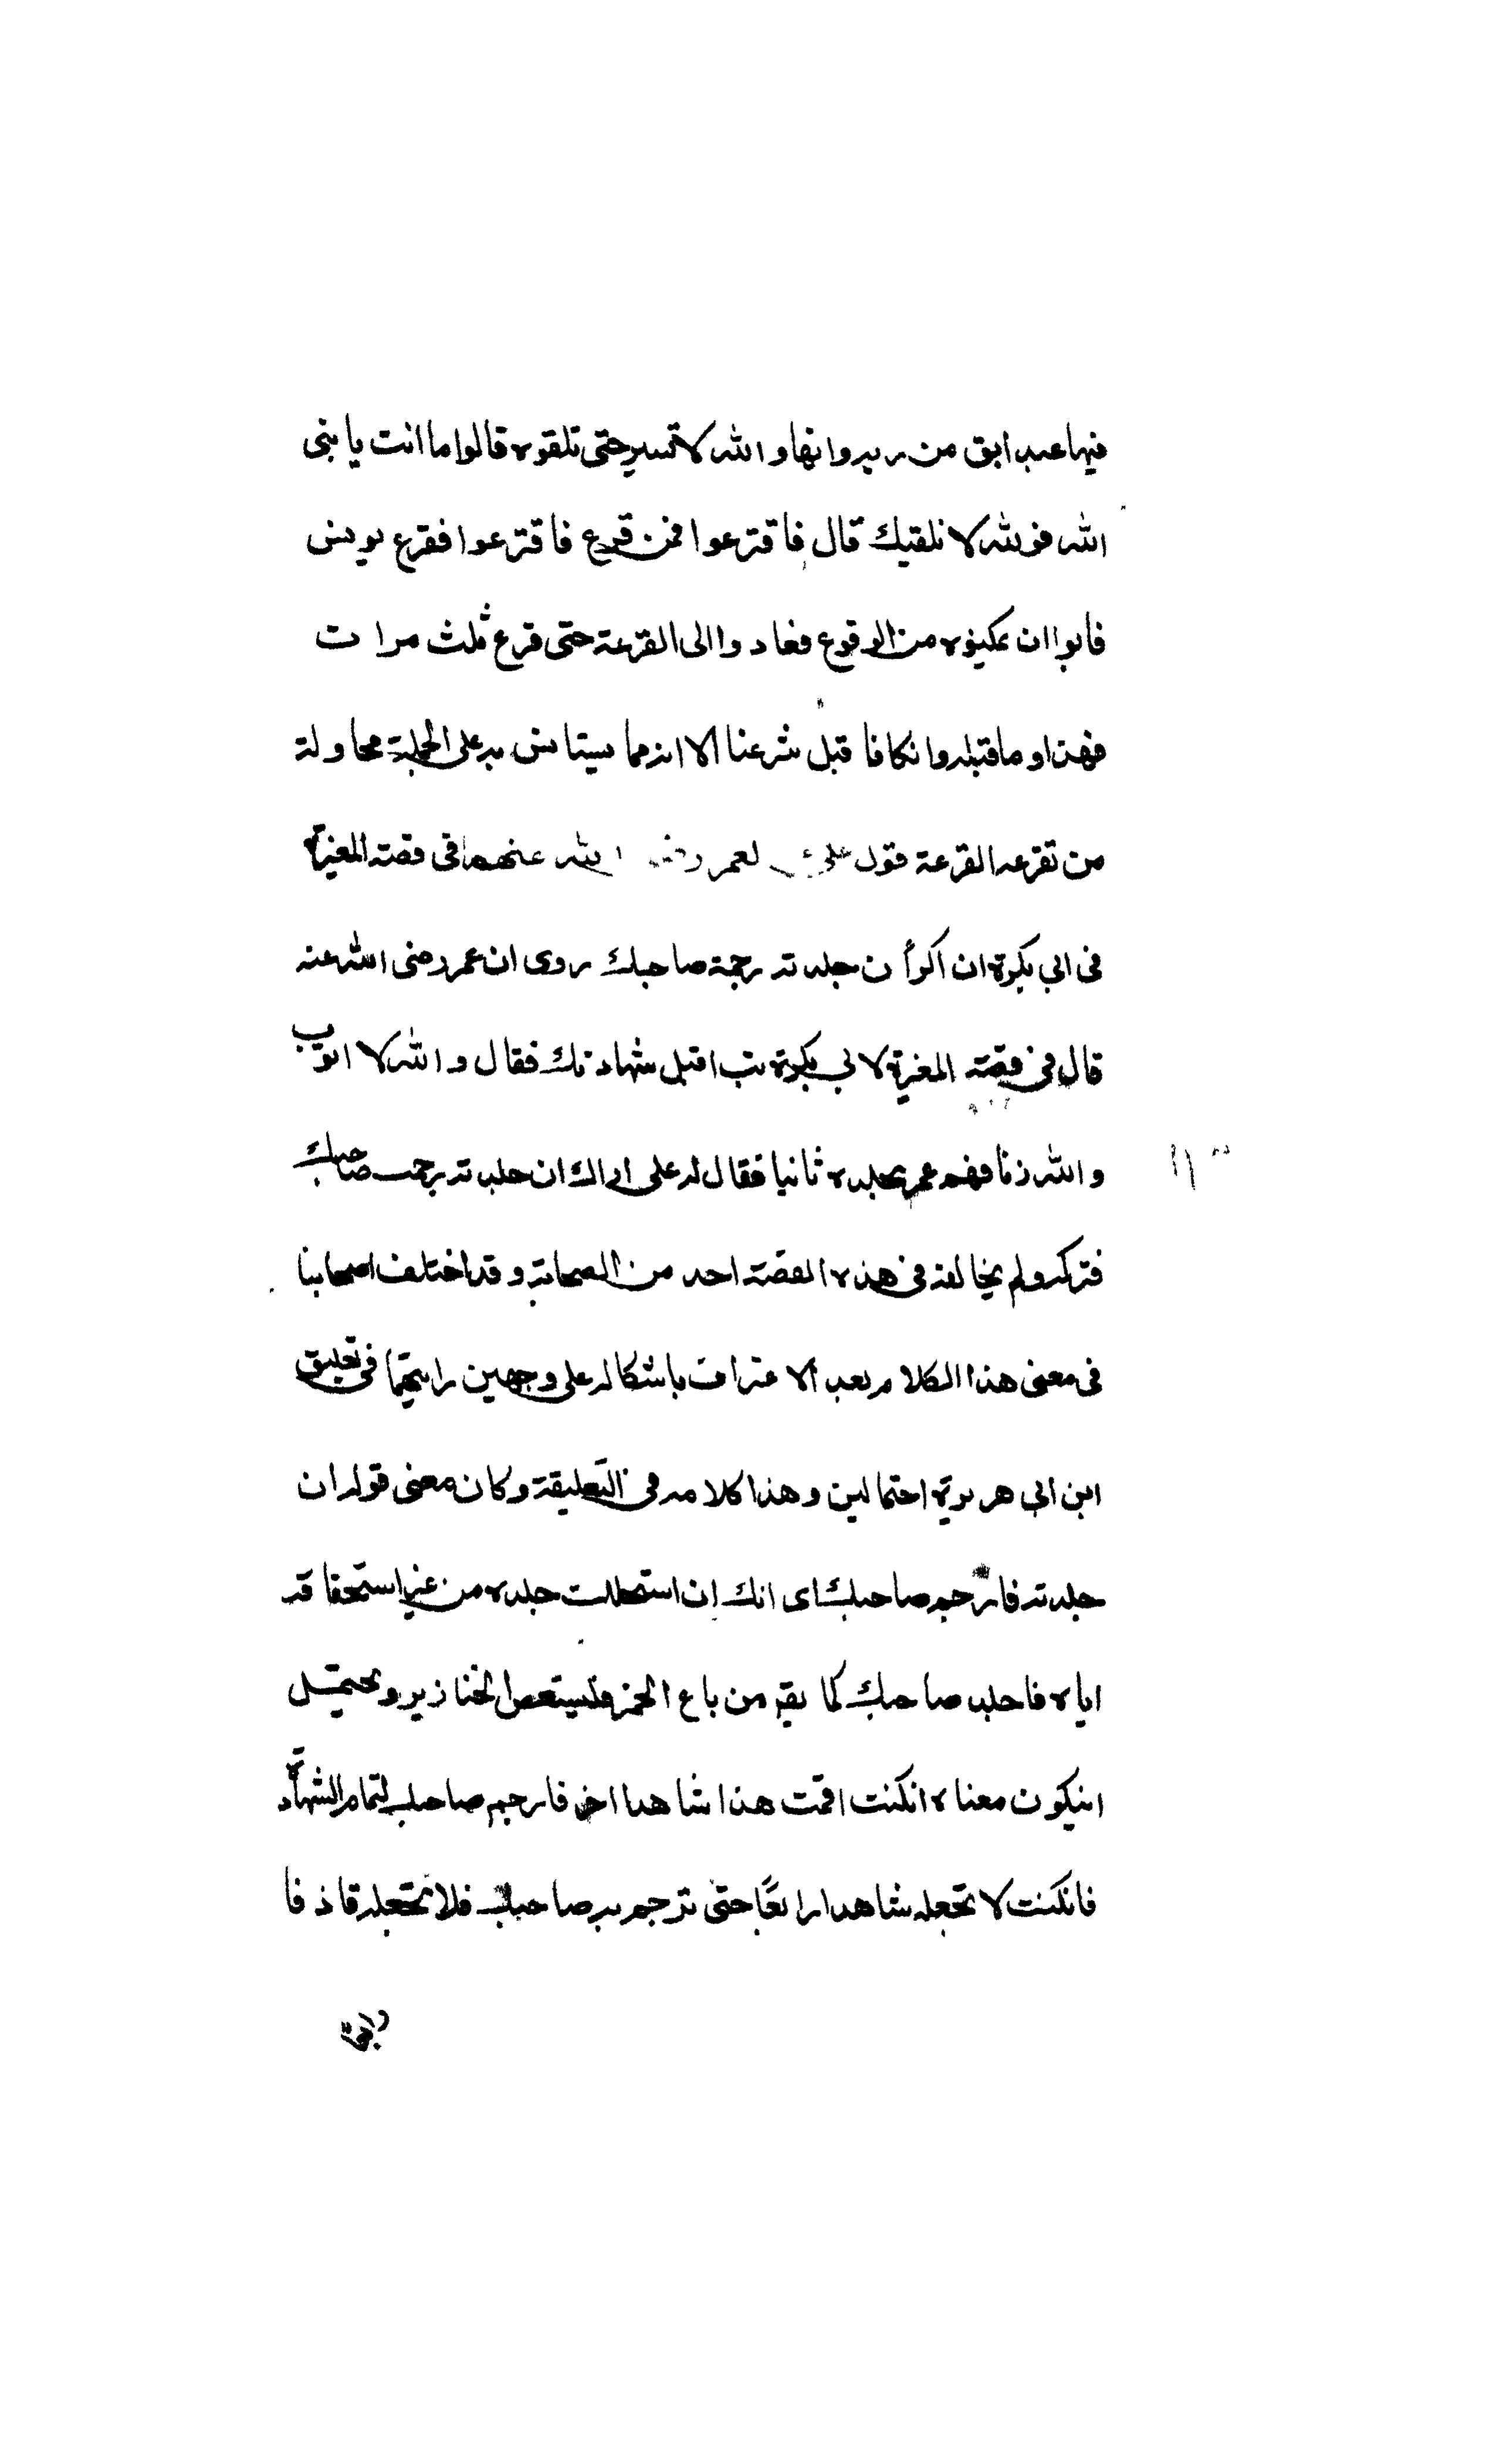 فيها عبد ابق من ربه وانها والله لا تسير حتى تلقوه قالوا ما انت يا نبى
الله فوالله لا نلقيك قال فاقترعوا فمن قرع فاقترعوا فقرع يونس
فابوا ان يمكنوه من الوقوع فعادوا الى القرعة حتى قرع ثلث مرات
فهذا وما قبله وانكانا قبل شرعنا الا انه مما يستانس به على الجملة محاولة
من تقرعه القرعة قول على لعمر رضى الله عنهما فى قصة المغيرة
فى ابى بكرة ان اراك ان جلدته رجمة صاحبك روى ان عمر رضى الله عنه
قال فى قصة المغيرة لابى بكرة تب اقبل شهادتك فقال والله لا اتوب
والله زنا فهم عمر بجلده ثانيا فقال له على اراك ان جلدته رجمت صاحبك
فتركه ولم يخالفه فى هذه القصة احد من الصحابة وقد اختلف اصحابنا
فى معنى هذا الكلام بعد الاعتراف باشكاله على وجهين رايتهما فى تعليق
ابن ابى هريرة احتمالين وهذا كلامه فى التعليقة وكان معنى قوله ان
جلدته فارجم صاحبك اى انك ان استحللت جلده من غير استحقاقه
اياه فاجلد صاحبك كما يقم من باع الخمر فليستقص الخنازير ويحتمل
انيكون معناه انكنت اقمت هذا شاهدا اخر فارجم صاحبك لتمام الشهادة
فانكنت لا تجعله شاهدا رابعًا حتى ترجم به صاحبك فلا تجعله قاذفا